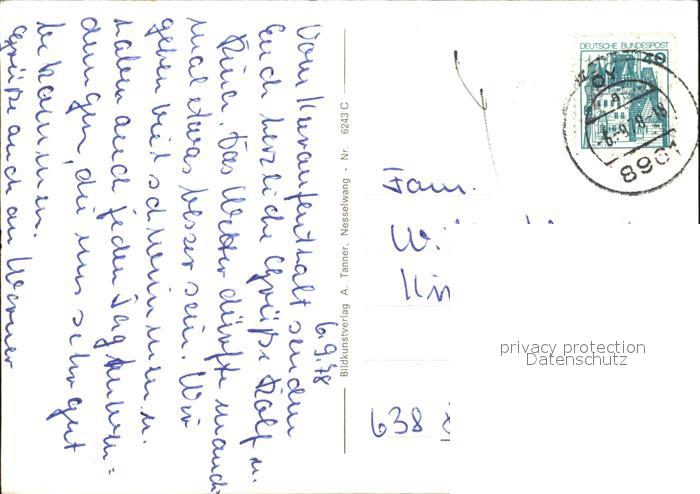 6.9.78
Vom Kuraufenthalt senden
Euch herzliche Grüße Rolf u.
Rina. Das Wetter dürfte manch
mal etwas besser sein. Wir
gehen viel schwimmen u.
haben auch jeden Tag
dungen, die uns sehr gut
bekommen.
Grüße auch an Werner
Bildkunstverlag A. Tanner, Nesselwang - Nr. 6243 C
DEUTSCHE BUNDESPOST
40
-6.-9.78
8901
Fam.
638
privacy protection
Datenschutz